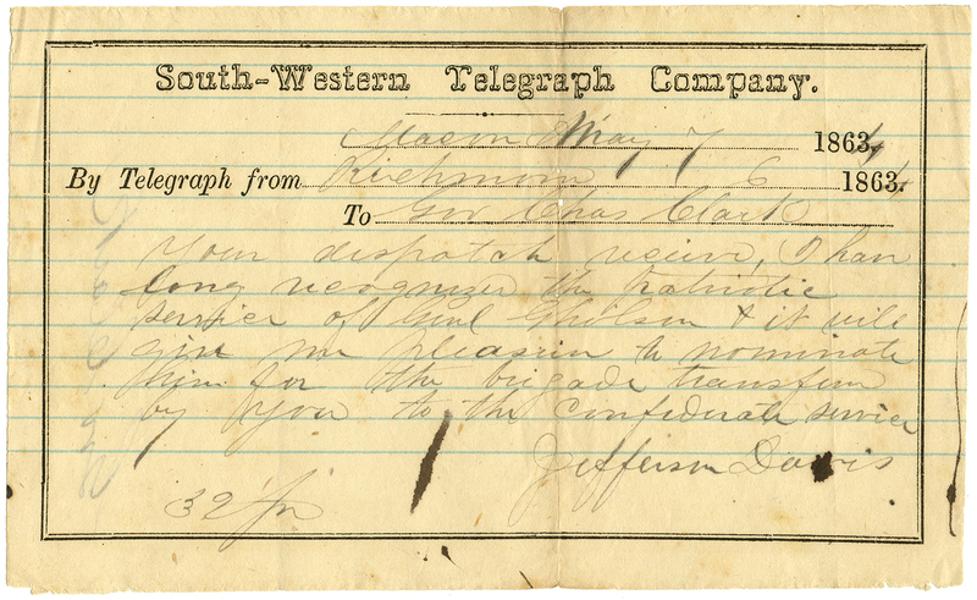 South-Western Telegraph Company.
Macon May 7 1864.
By Telegraph from Richmond 6 1864.
To Gov Chas Clark
Your dispatch receivd, I have
long recognized the patriotic
service of Genl Gholson & it will
give me pleasure to nominate
him for the brigade transferred
by you to the Confederate service
Jefferson Davis
32